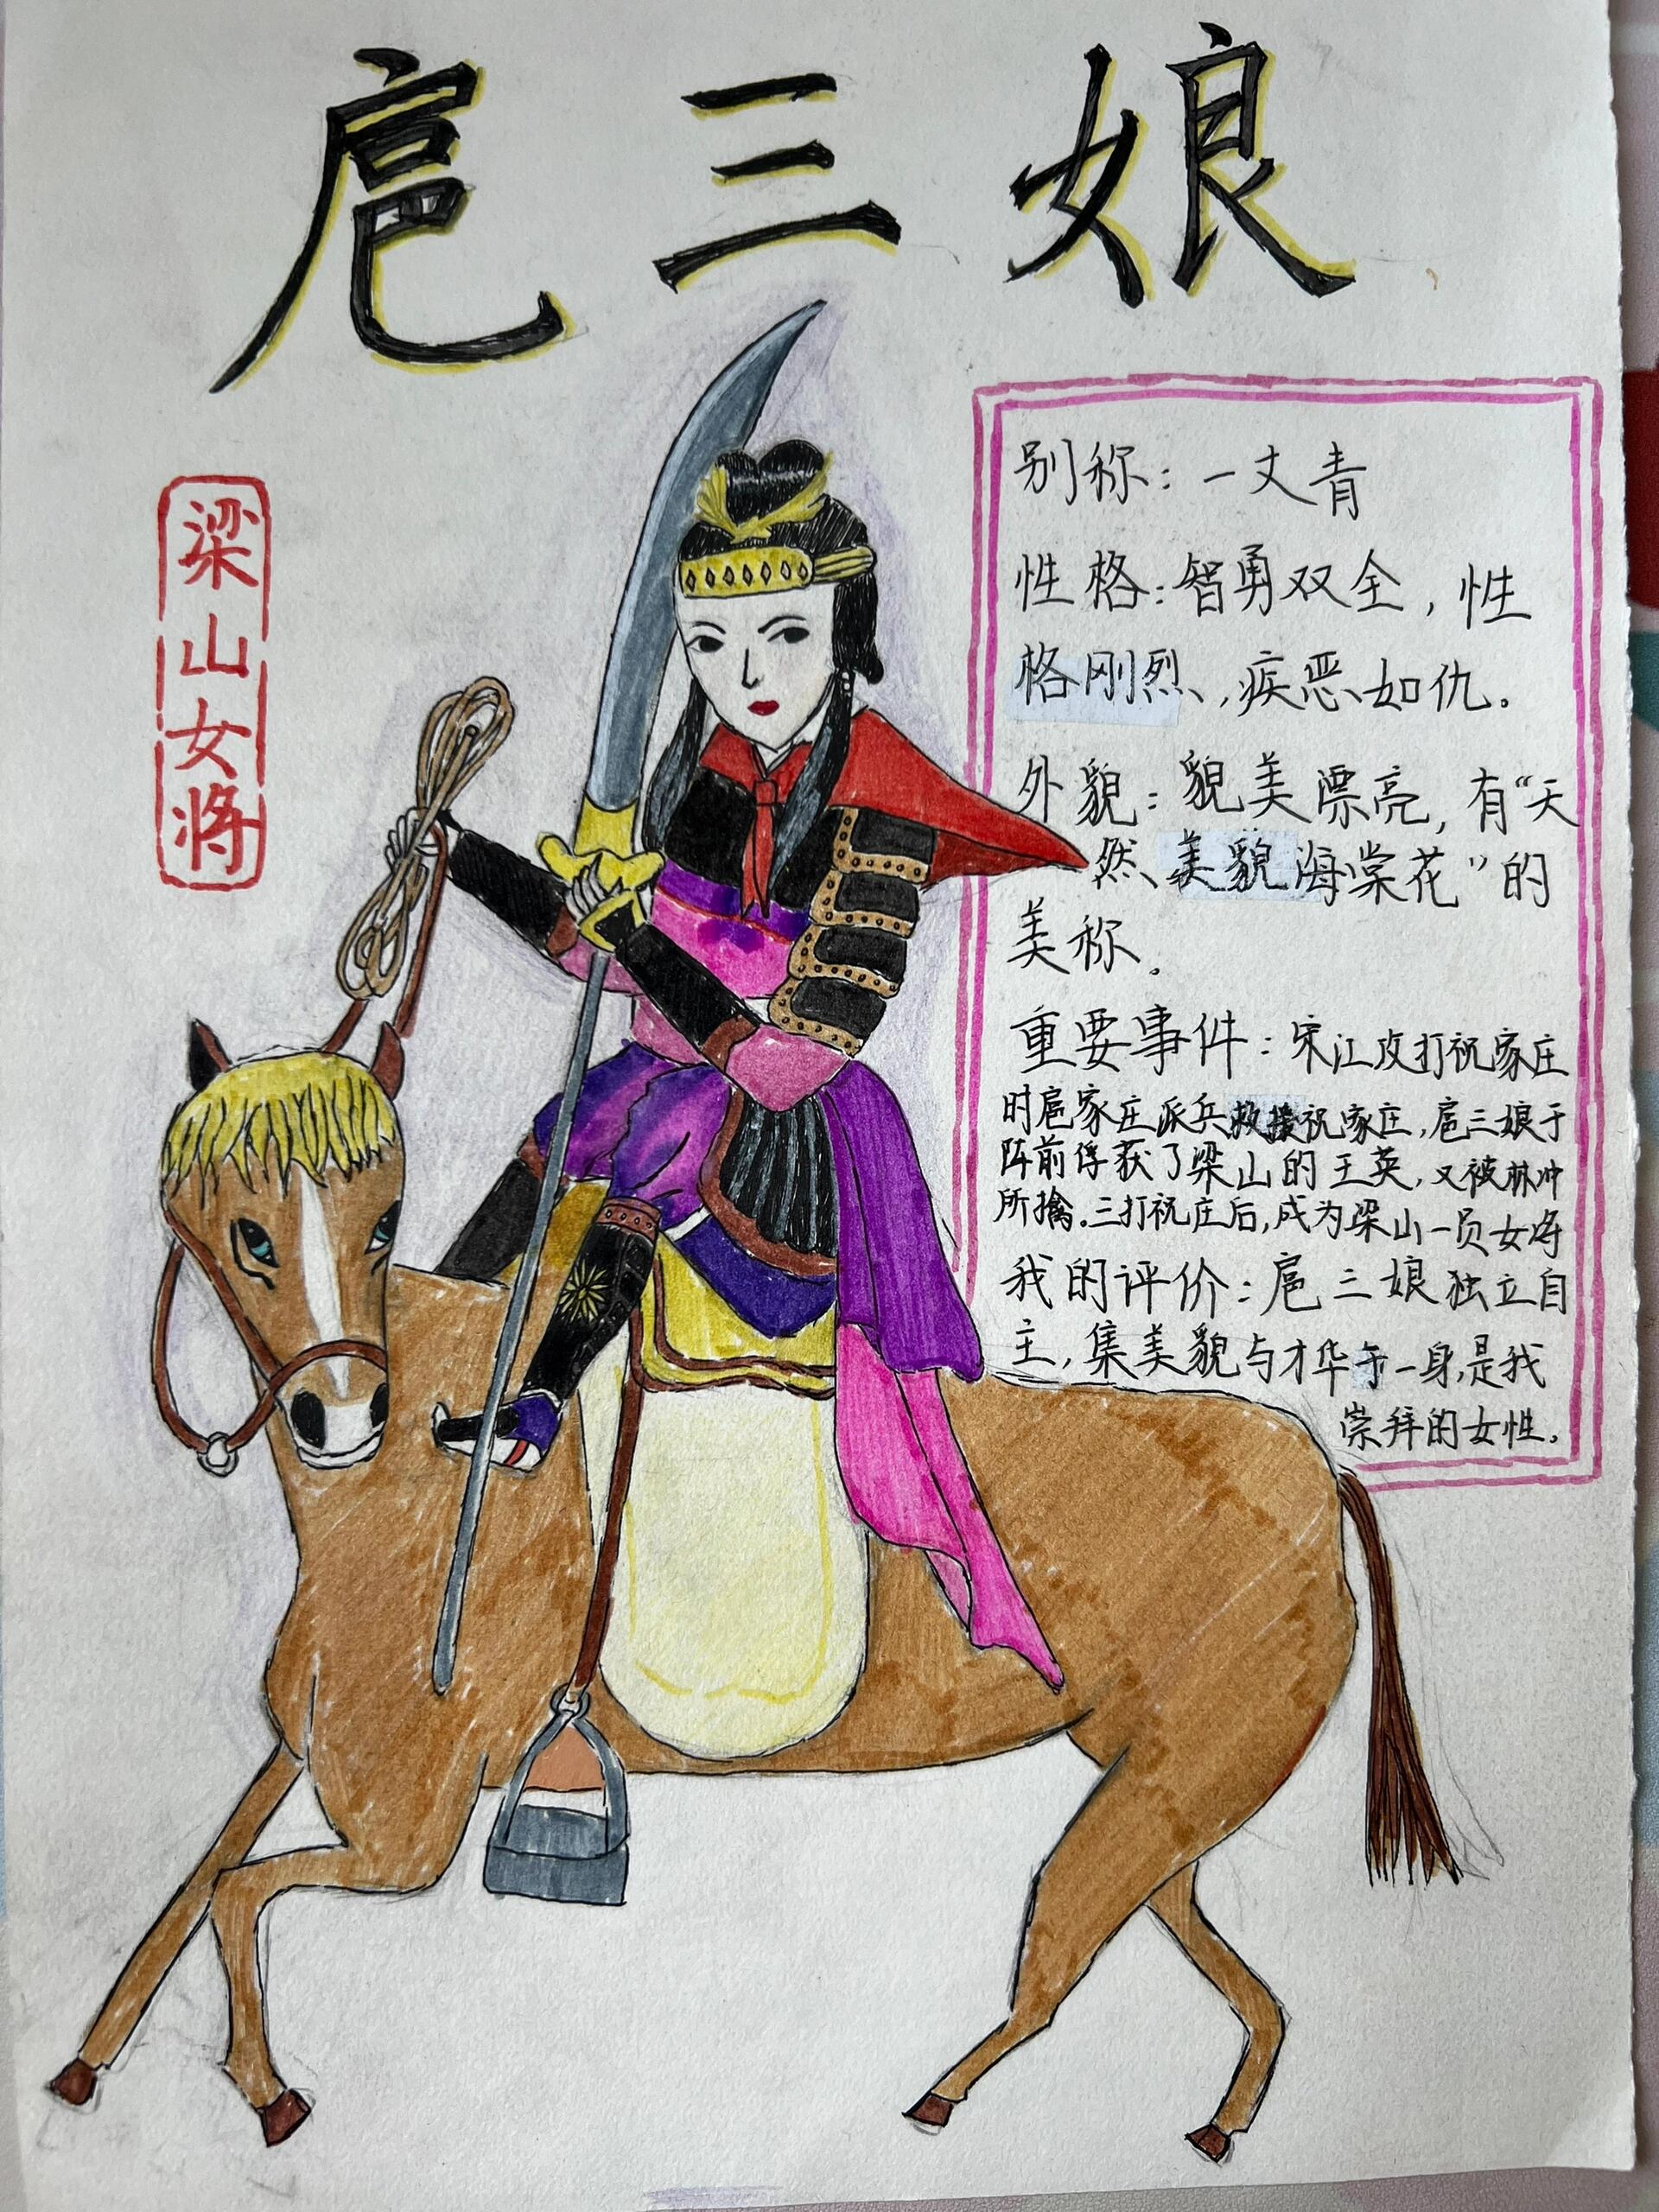 扈三娘
梁山女将
别称：一丈青
性格：智勇双全，性
格刚烈、，疾恶如仇。
外貌：貌美漂亮，有“天
然、美貌海棠花”的
美称。
重要事件：宋江攻打祝家庄
时扈家庄派兵救援祝家庄，扈三娘于
阵前俘获了梁山的王英，又被林冲
所擒。三打祝庄后，成为梁山一员女将
我的评价：扈三娘独立自
主，集美貌与才华于一身，是我
崇拜的女性。